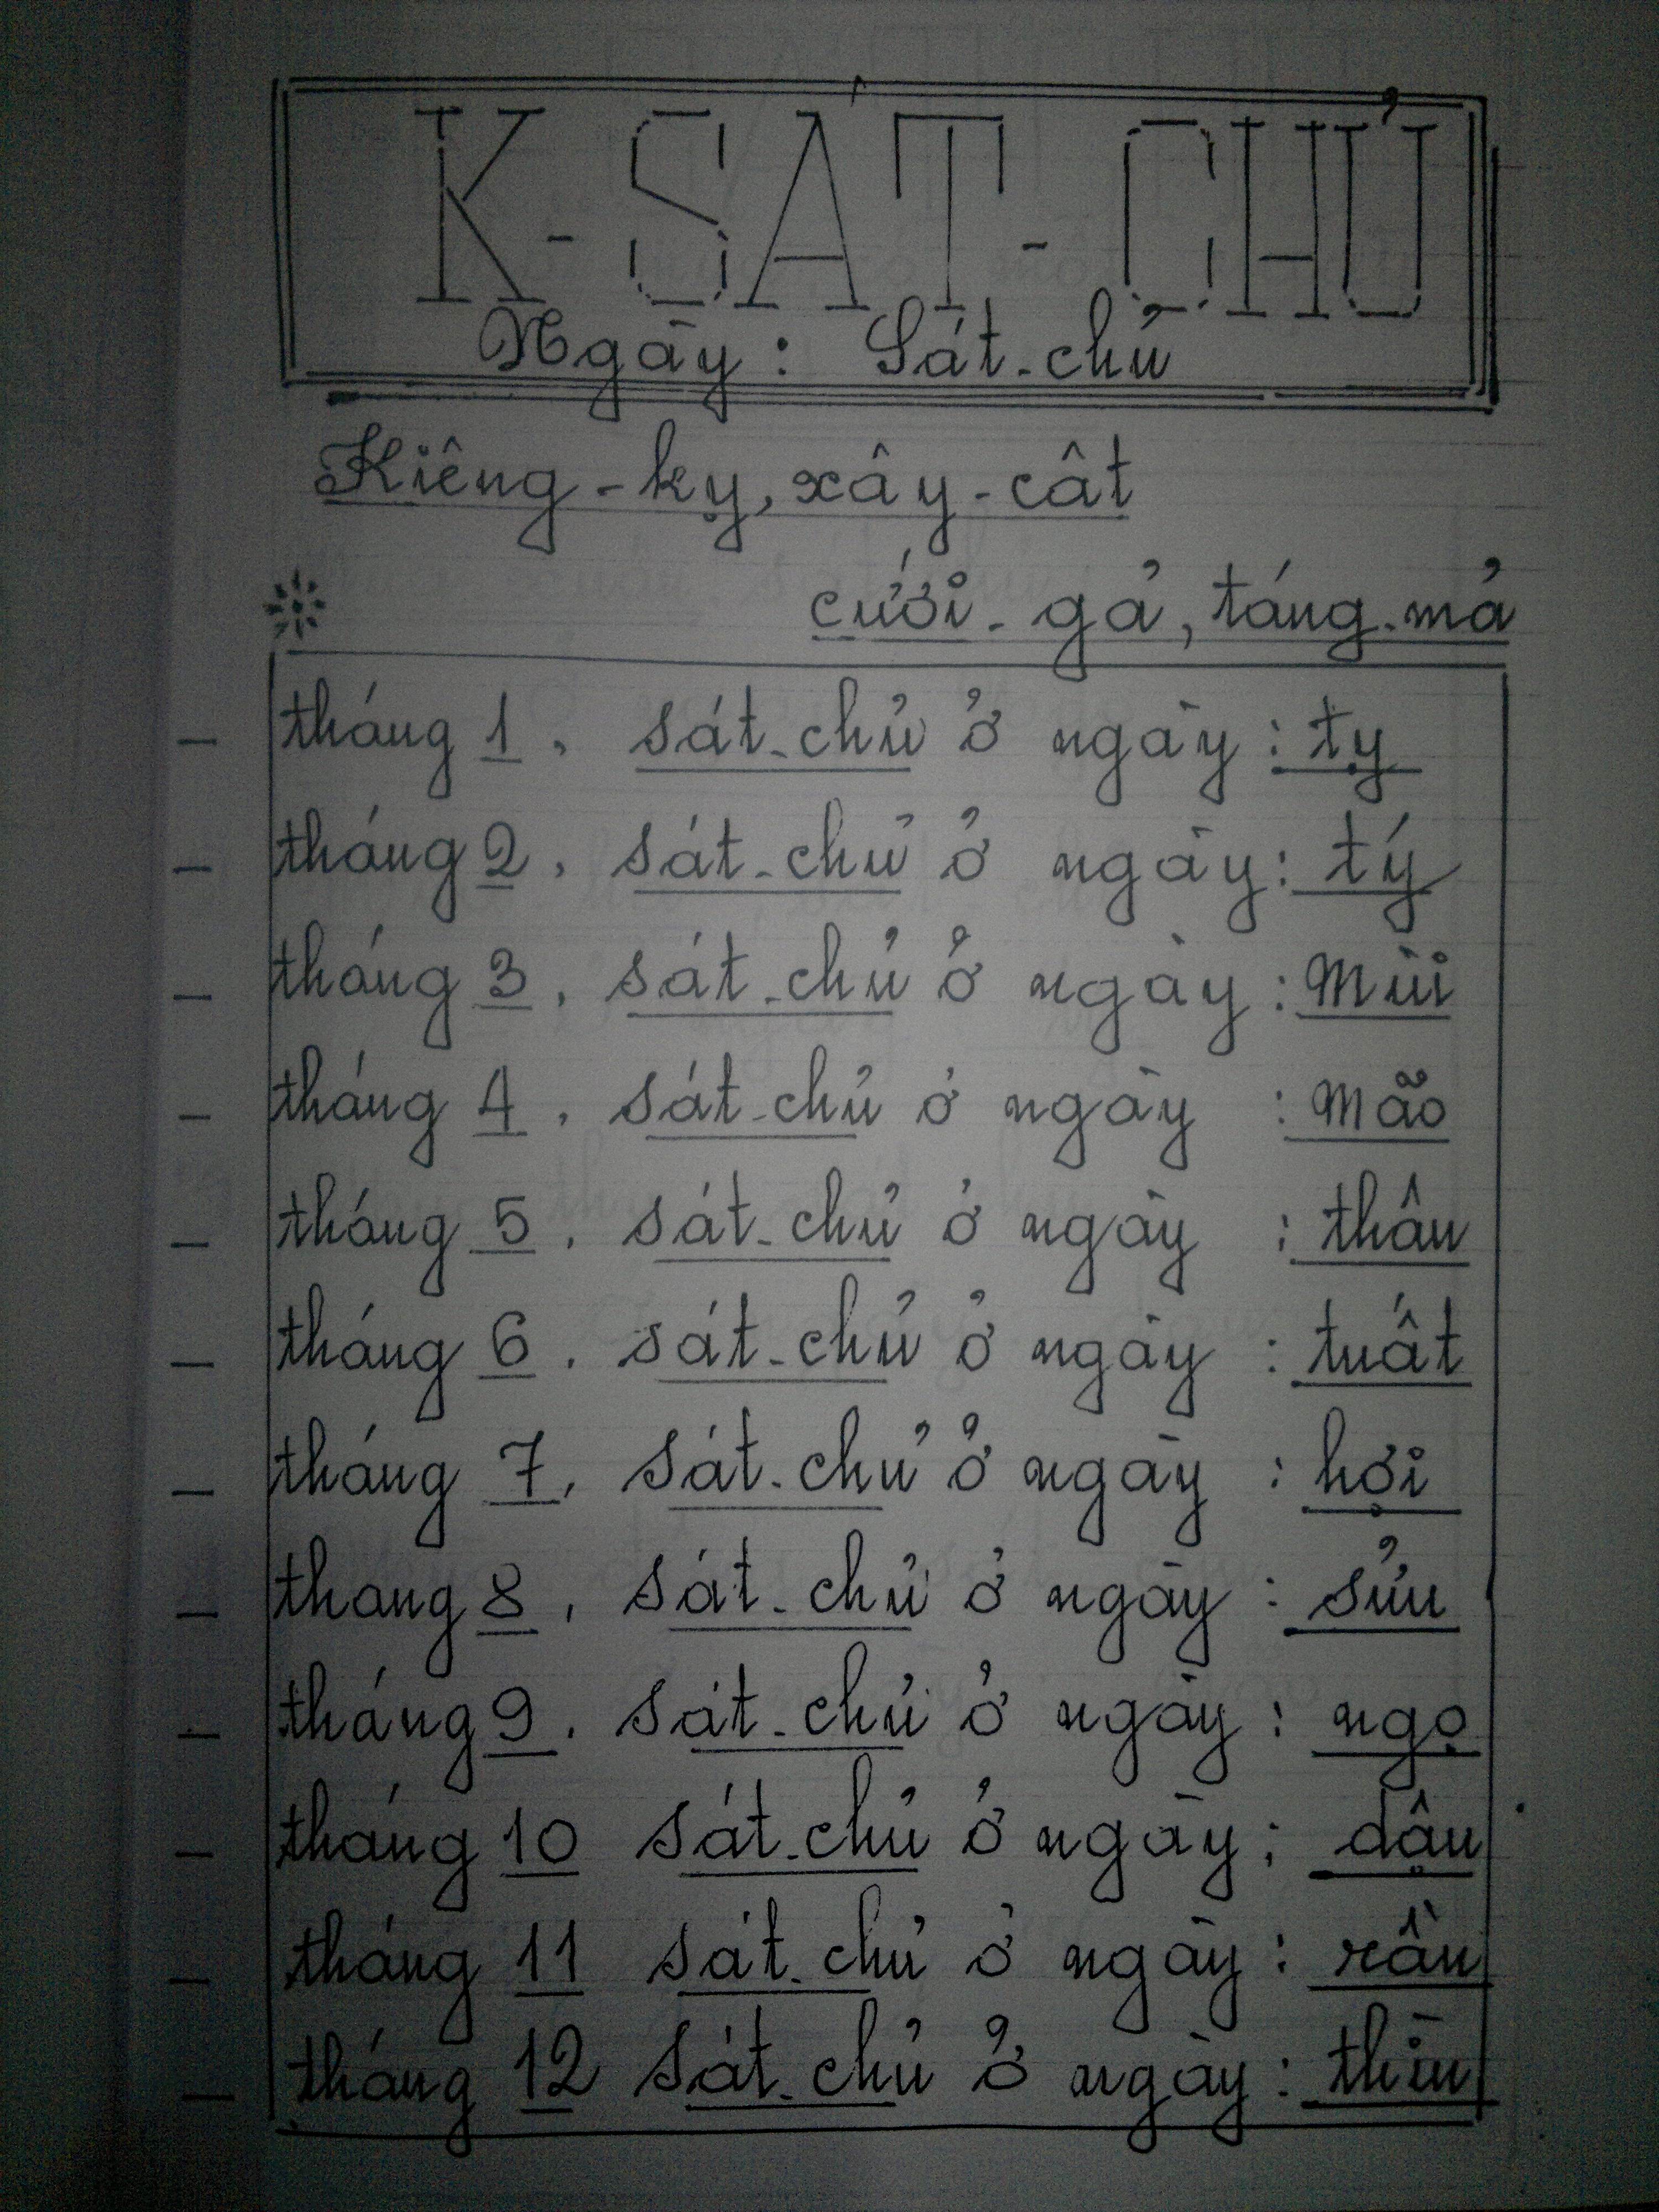 K - SÁT - CHỦ
Ngày : Sát - chủ
Kiêng - kỵ, xây - cât
cưới - gả, táng - mả
- tháng 1, sát - chủ ở ngày : tỵ
- tháng 2, sát - chủ ở ngày : tý
- tháng 3, sát - chủ ở ngày : Mùi
- tháng 4, sát - chủ ở ngày : mão
- tháng 5, sát - chủ ở ngày : thân
- tháng 6, sát - chủ ở ngày : tuất
- tháng 7, sát - chủ ở ngày : hợi
- thang 8, sát - chủ ở ngày : sửu
- tháng 9, sát - chủ ở ngày : ngọ
- tháng 10 sát - chủ ở ngày ; dậu
- tháng 11 sát - chủ ở ngày : rần
- tháng 12 sát - chủ ở ngày : thìn